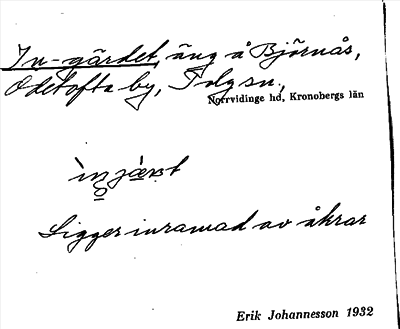 In-gärdet, äng å Björnås,
Odetofta by, Tolg sn.,
Norrvidinge hd, Kronobergs län
Ligger inramad av åkrar
Erik Johannesson 1932